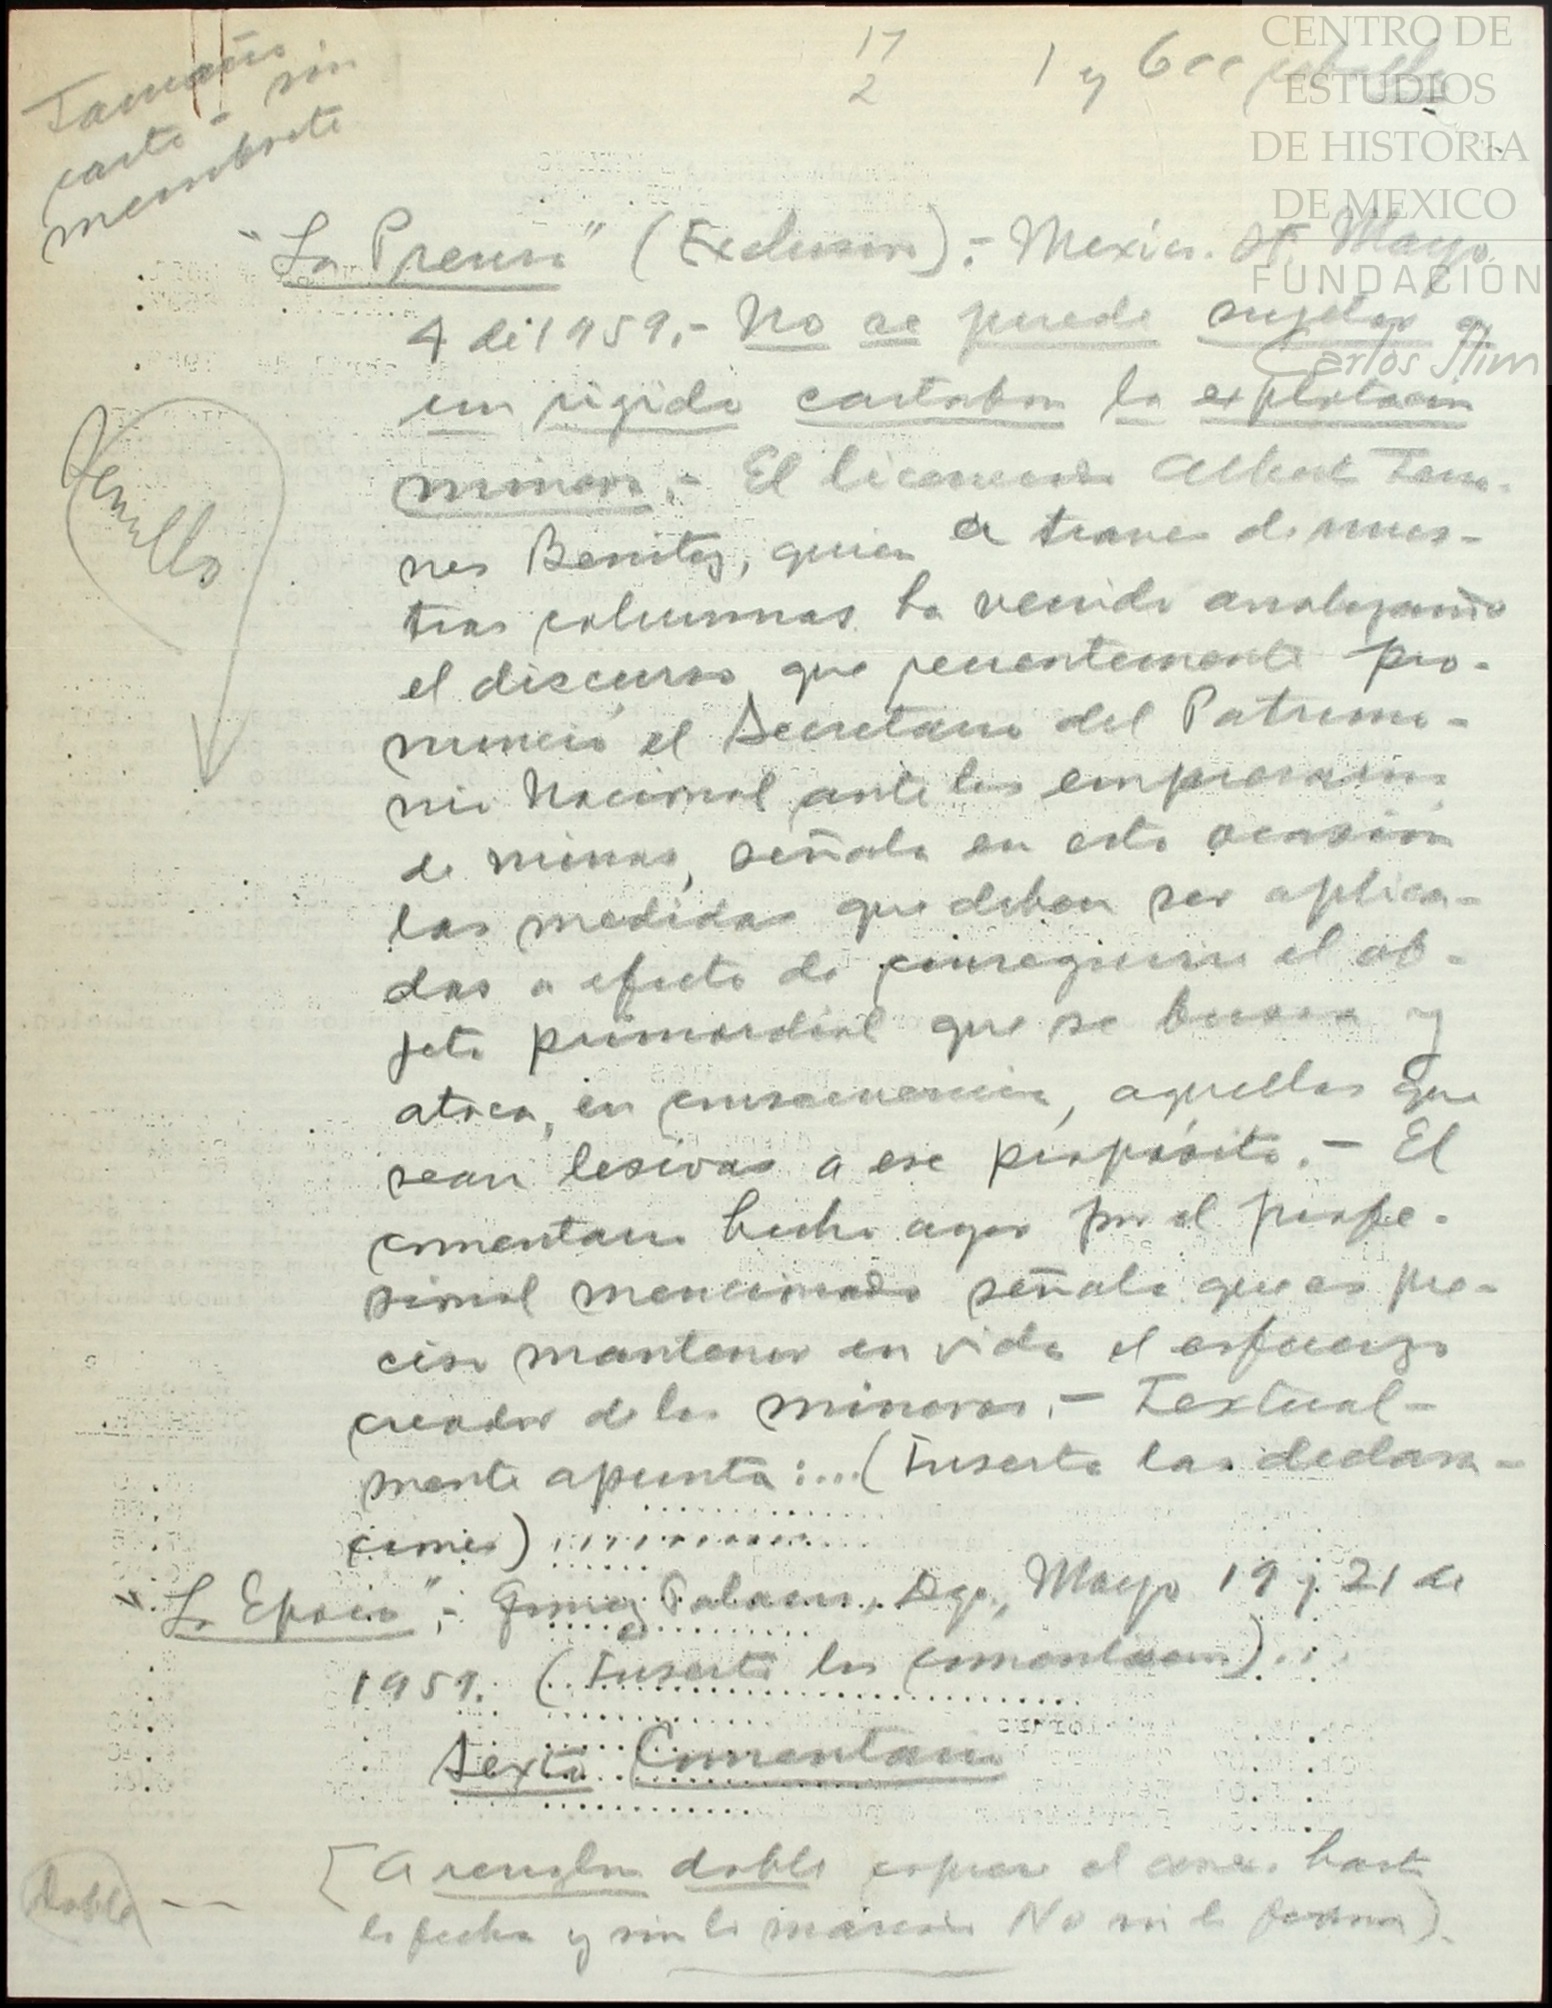 Tamaño
carta - sin
membrete
17
2
1 y 6
CENTRO DE
ESTUDIOS
DE HISTORIA
DE MEXICO
FUNDACIÓN
Carlos Slim
"La Prensa" (Exclusiva).- Mexico. Df. Mayo
4 de 1959.- No se puede sujetar a
un rigido cartabon la explotacion
minera.- El licenciado Albert Terro-
nes Benitez, quien a traves de nues-
tras columnas ha venido analizando
el discurso que recientemente pro-
nunció el Secretario del Patrimo-
nio Nacional ante los empresarios
de minas, señala en esta ocasión
las medidas que deben ser aplica-
das a efecto de conseguirse el ob-
jeto primordial que se busca y
ataca, en consecuencia, aquellas que
sean lesivas a ese propósito.- El
comentario hecho ayer por el profe-
sional mencionado señala que es pre-
ciso mantener en vida el esfuerzo
creador de los mineros.- Textual-
mente apunta:...(Inserta las declara-
ciones)..........
Sencillo
"La Epoca".- Gomez Palacio, Dgo., Mayo 19 y 21 de
1959. (Inserta los comentarios)...
Sexto Comentario
Doble --
[A renglon doble copiar el anexo hasta
la fecha y sin la marcada No ni la firma).